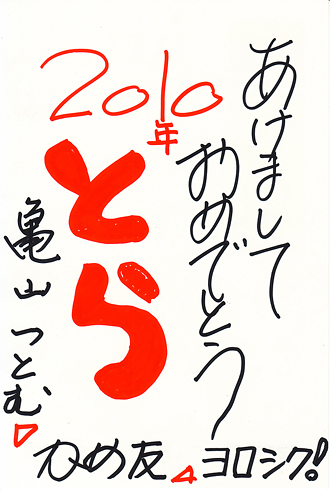 あけまして
おめでとう
2010
年
とら
亀山つとむ
ひめ友
ヨロシク!